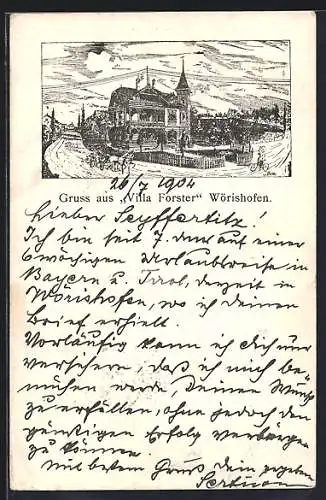 Gruss aus „Villa Forster“ Wörishofen.
26/7 1904
Lieber Seyffertitz!
Ich bin seit 7. d. M. auf einer
6 wöchigen Urlaubsreise in
Bayern u. Tirol, derzeit in
Wörishofen, wo ich deinen
Brief erhielt.
Vorläufig kann ich dich nur
versichern, daß ich mich be-
mühen werde, Deinen Wunsch
zu erfüllen, ohne jedoch den
günstigen Erfolg verbürgen
zu können.
Mit bestem Gruss Dein ergebener